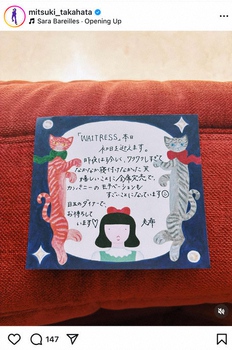 mitsuki_takahata
Sara Bareilles • Opening Up
「WAITRESS」本日
初日を迎えます。
昨夜は珍しく、ワクワクしすぎて
なかなか寝付けなかった笑
嬉しいことに全席完売で、
カンパニーのモチベーションも
すごーいことになっています
日比谷のダイナーで、
お待ちして
います♡
充希
147